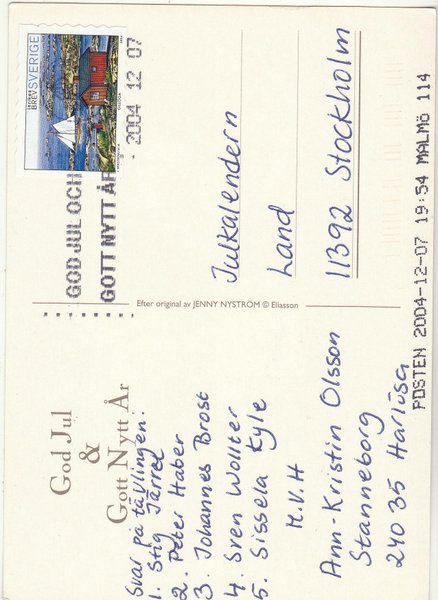 God Jul
&
Gott Nytt År
Svar på tävlingen:
1. Stig Järrel
2. Peter Haber
3. Johannes Brost
4. Sven Wollter
5. Sissela Kyle
M.V.H
Ann-Kristin Olsson
Stanneborg
240 35 Harlösa
Efter original av JENNY NYSTRÖM © Eliasson
BREV SVERIGE
GOD JUL OCH
GOTT NYTT ÅR
2004 12 07
Julkalendern
Land
11392 Stockholm
POSTEN 2004-12-07 19:54 MALMÖ 114